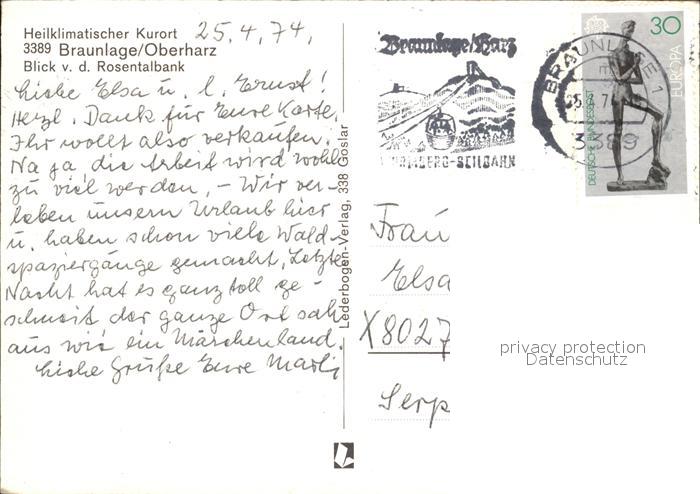 Heilklimatischer Kurort
3389 Braunlage/Oberharz
Blick v. d. Rosentalbank
25.4.74,
Liebe Elsa u. l. Ernst!
Herzl. Dank für Eure Karte.
Ihr wollt also verkaufen.
Na ja, die Arbeit wird wohl
zu viel werden, – Wir ver-
leben unsern Urlaub hier
u. haben schon viele Wald-
spaziergänge gemacht, Letzte
Nacht hat es ganz toll ge-
schneit der ganze Ort sah
aus wie ein Märchenland.
Liebe Grüße Eure Marli
Lederbogen-Verlag, 338 Goslar
Braunlage/Harz
WURMBERG-SEILBAHN
BRAUNLAGE 1
3389
30
EUROPA
DEUTSCHE BUNDESPOST
Frau
Elsa
X8027
Serp
privacy protection
Datenschutz